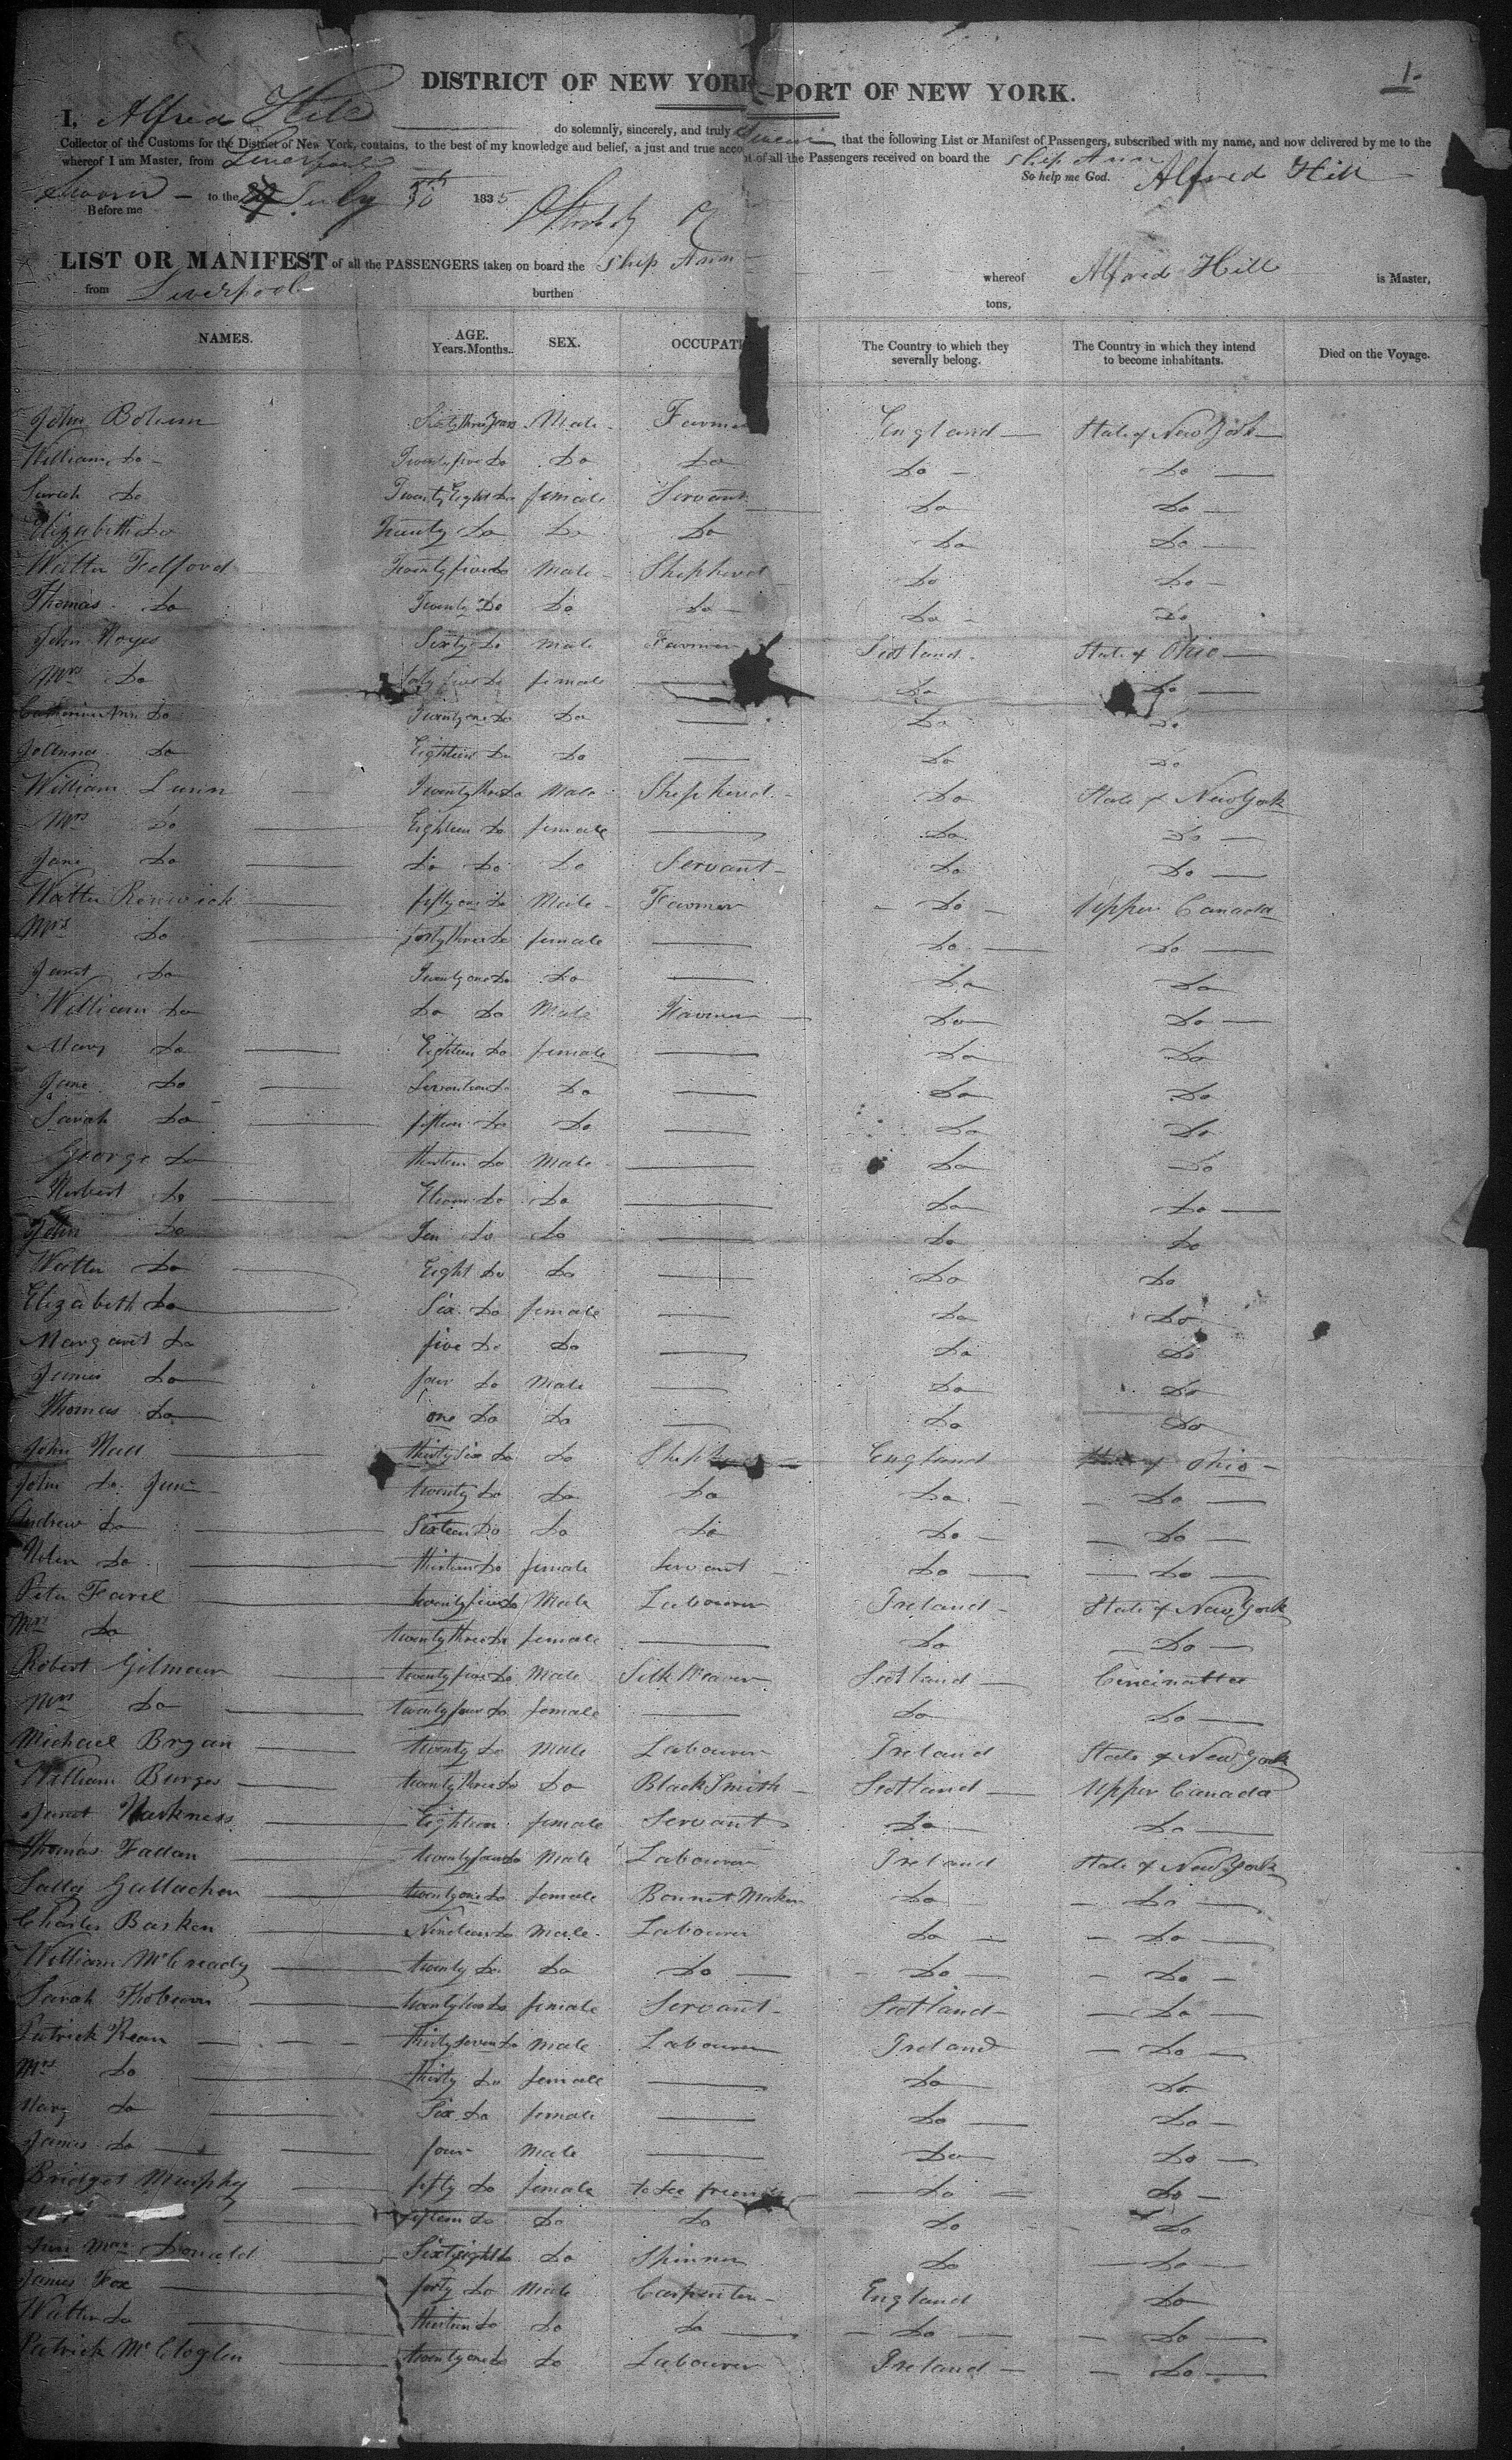 1.
DISTRICT OF NEW YORK—PORT OF NEW YORK.
I, Alfred Hill do solemnly, sincerely, and truly swear that the following List or Manifest of Passengers, subscribed with my name, and now delivered by me to the
Collector of the Customs for the District of New York, contains, to the best of my knowledge and belief, a just and true account of all the Passengers received on board the ship Ann
whereof I am Master, from Liverpool So help me God. Alfred Hill
Sworn to the July 30 1835
Before me
LIST OR MANIFEST of all the PASSENGERS taken on board the Ship Ann whereof Alfred Hill is Master,
from Liverpool burthen tons,
NAMES. AGE. Years. Months. SEX. OCCUPATI The Country to which they severally belong. The Country in which they intend to become inhabitants. Died on the Voyage.
John Sixty three Years Male Farmer England State of New York
William Do Twenty five Do Do Do Do Do
Sarah Do Twenty Eight Do female Servant Do Do
Elizabeth Do Twenty Do Do Do Do Do
Walter Telford Twenty five Do Male Shepherd Do Do
Thomas Do Twenty Do Do Do Do Do
John Noyes Sixty Do Male Farmer Scotland State of Ohio
Mrs Do forty five Do female Do Do
Catherine Ann Do Twenty one Do Do Do Do
Joanna Do Eighteen Do Do Do Do
William Lunn Twenty three Do Male Shepherd Do State of New York
Mrs Do Eighteen Do female Do Do
Jane Do Do Do Do Servant Do Do
Walter Renwick fifty one Do Male Farmer Do Upper Canada
Mrs Do forty three Do female Do Do
Janet Do Twenty one Do Do Do Do
William Do Do Do Male Farmer Do Do
Mary Do Eighteen Do female Do Do
Jane Do Seventeen Do Do Do Do
Sarah Do fifteen Do Do Do Do
George Do thirteen Do Male Do Do
Robert Do Eleven Do Do Do Do
John Do Ten Do Do Do Do
Walter Do Eight Do Do Do Do
Elizabeth Do Six Do female Do Do
Margaret Do five Do Do Do Do
James Do four Do Male Do Do
Thomas Do one Do Do Do Do
John Hall thirty Six Do Do England of Ohio
John Do Junr twenty Do Do Do Do Do
Andrew Do Sixteen Do Do Do Do Do
Do thirteen Do female Servant Do Do
Peter Farel twenty five Do Male Labourer Ireland State of New York
Mrs Do twenty three Do female Do Do
Robert Gilmour twenty five Do Male Silk Weaver Scotland Cincinatter
Mrs Do twenty four Do female Do Do
Michael Bryan twenty Do Male Labourer Ireland State of New York
William Burges twenty three Do Do Black Smith Scotland Upper Canada
Janet Harkness Eighteen female Servant Do Do
Thomas Fallan twenty four Do Male Labourer Ireland State of New York
Sally Gallacher twenty one Do female Bonnet Maker Do Do
Charles Barken Nineteen Do Male Labourer Do Do
William McCready twenty Do Do Do Do Do
Sarah twenty two Do female Servant Scotland Do
Patrick Rean Thirty seven Do Male Labourer Ireland Do
Mrs Do thirty Do female Do Do
Mary Do Six Do female Do Do
James Do four Male Do Do
Bridget Murphy fifty Do female to See friends Do Do
fifteen Do Do Do Do Do
Donald Sixty eight Do Do Spinner Do Do
James Fox forty Do Male Carpenter England Do
Walter Do thirteen Do Do Do Do Do
Patrick McCloglen twenty one Do Do Labourer Ireland Do